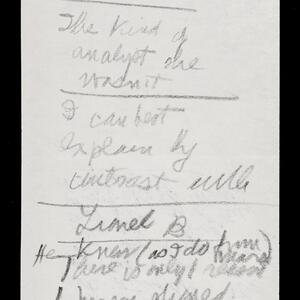 The kind of
analyst she
wasn't
I can best
explain by
contrast with
Lionel B
Hey Knew (as I do
there is only 1 reason